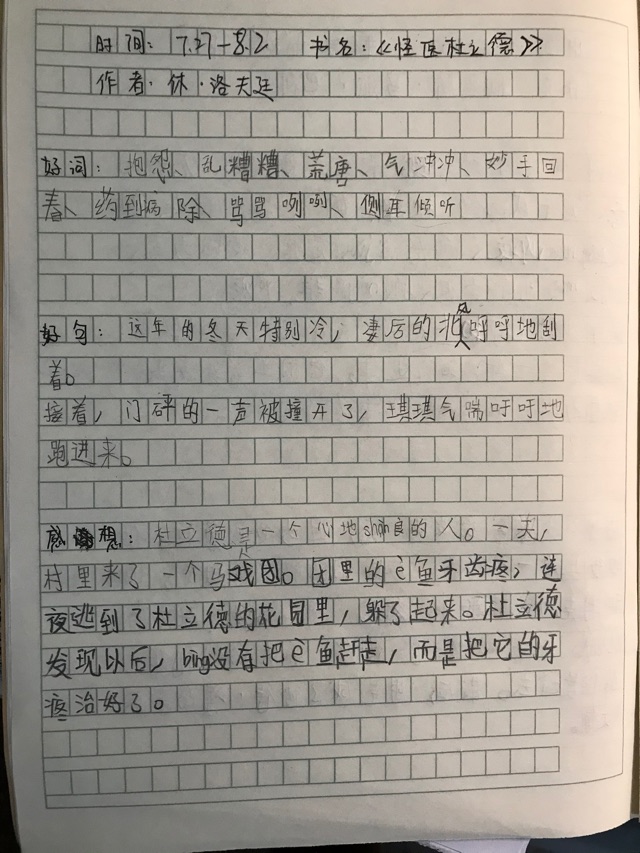 时间：7.27-8.2 书名：《怪医杜立德》
作者·休·洛夫廷
好词：抱怨、乱糟糟、荒唐、气冲冲、妙手回
春、药到病除、骂骂咧咧、侧耳倾听
好句：这年的冬天特别冷，凄厉的北风呼呼地刮
着。
接着，门砰的一声被撞开了，琪琪气喘吁吁地
跑进来。
感想：杜立德是一个心地shàn良的人。一天，
村里来了一个马戏团。团里的è鱼牙齿疼，连
夜逃到了杜立德的花园里，躲了起来。杜立德
发现以后，bìng没有把è鱼赶走，而是把它的牙
疼治好了。